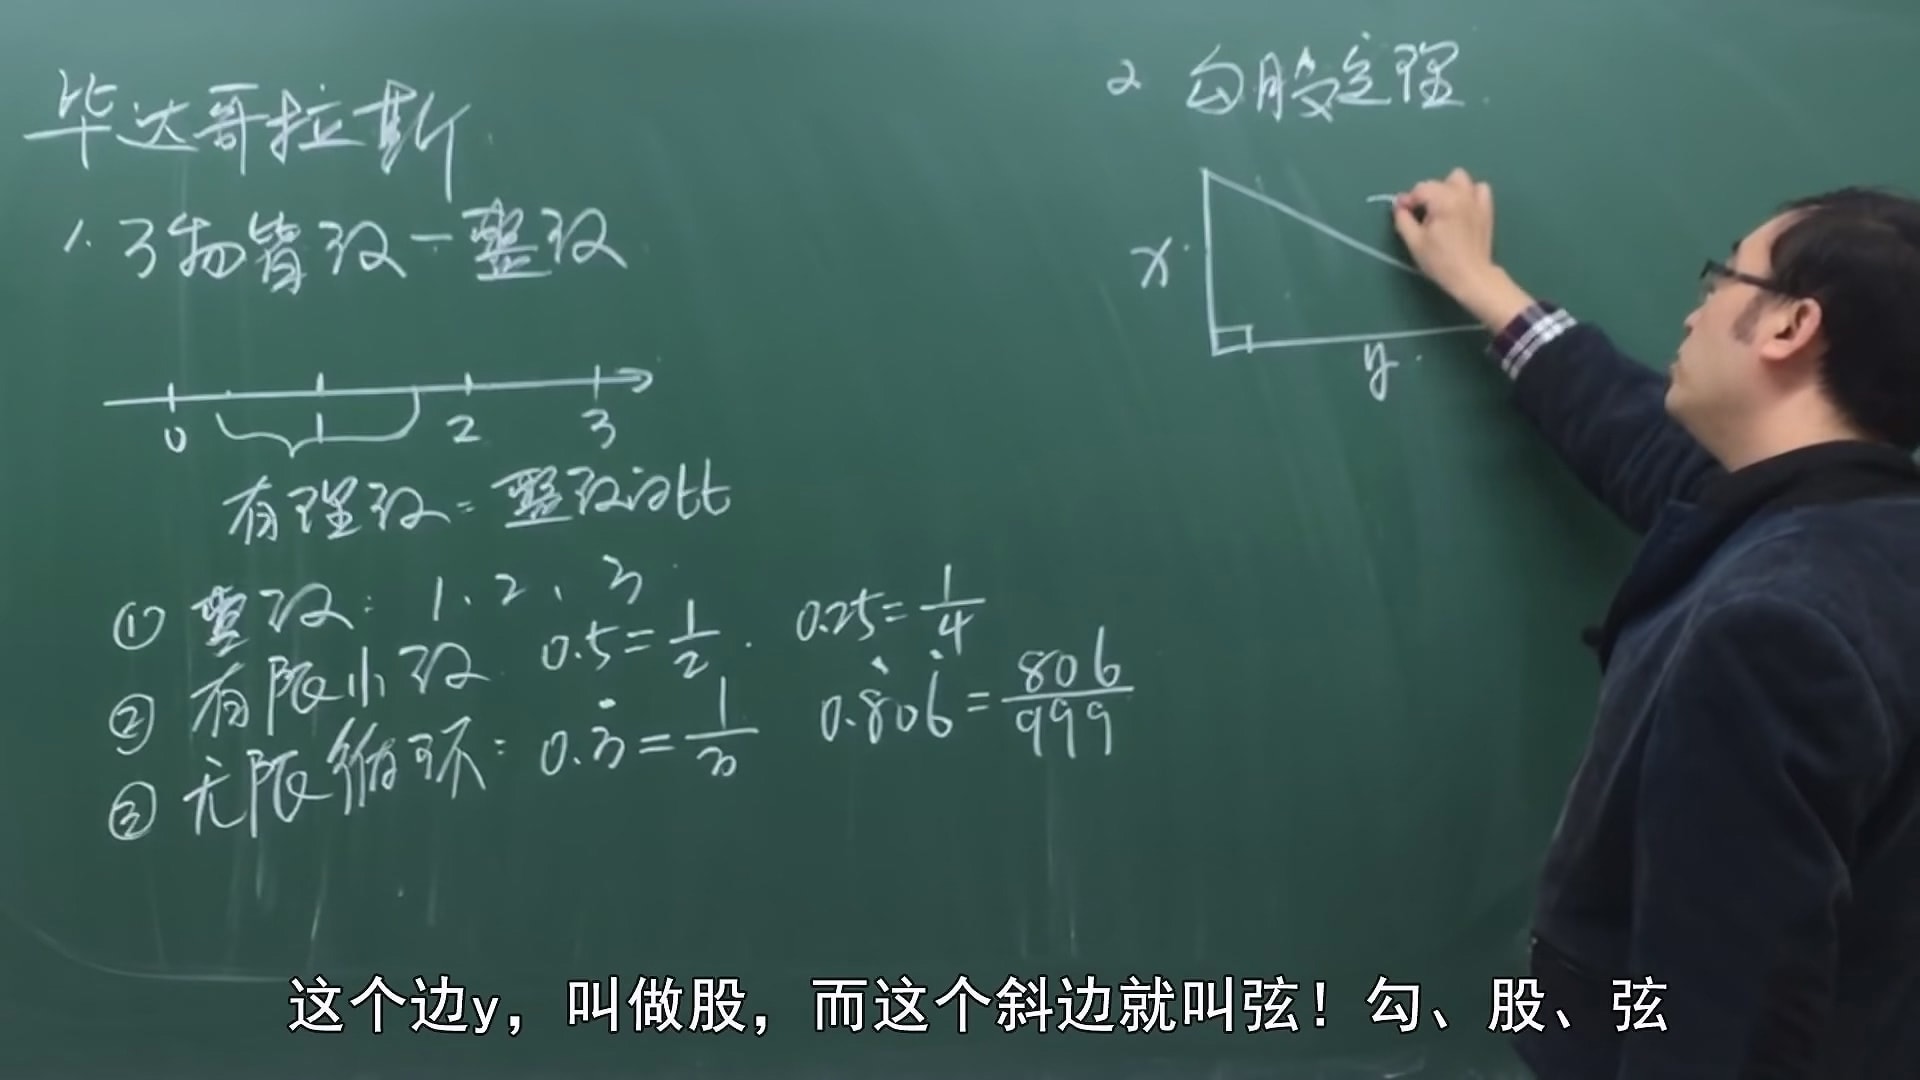 毕达哥拉斯
1. 万物皆数－整数
0 1 2 3
有理数=整数的比
① 整数: 1、2、3
② 有限小数 0.5=1/2. 0.25=1/4
③ 无限循环: 0.3̇=1/3 0.8̇06̇=806/999
2 勾股定理
x
y
这个边y，叫做股，而这个斜边就叫弦！勾、股、弦